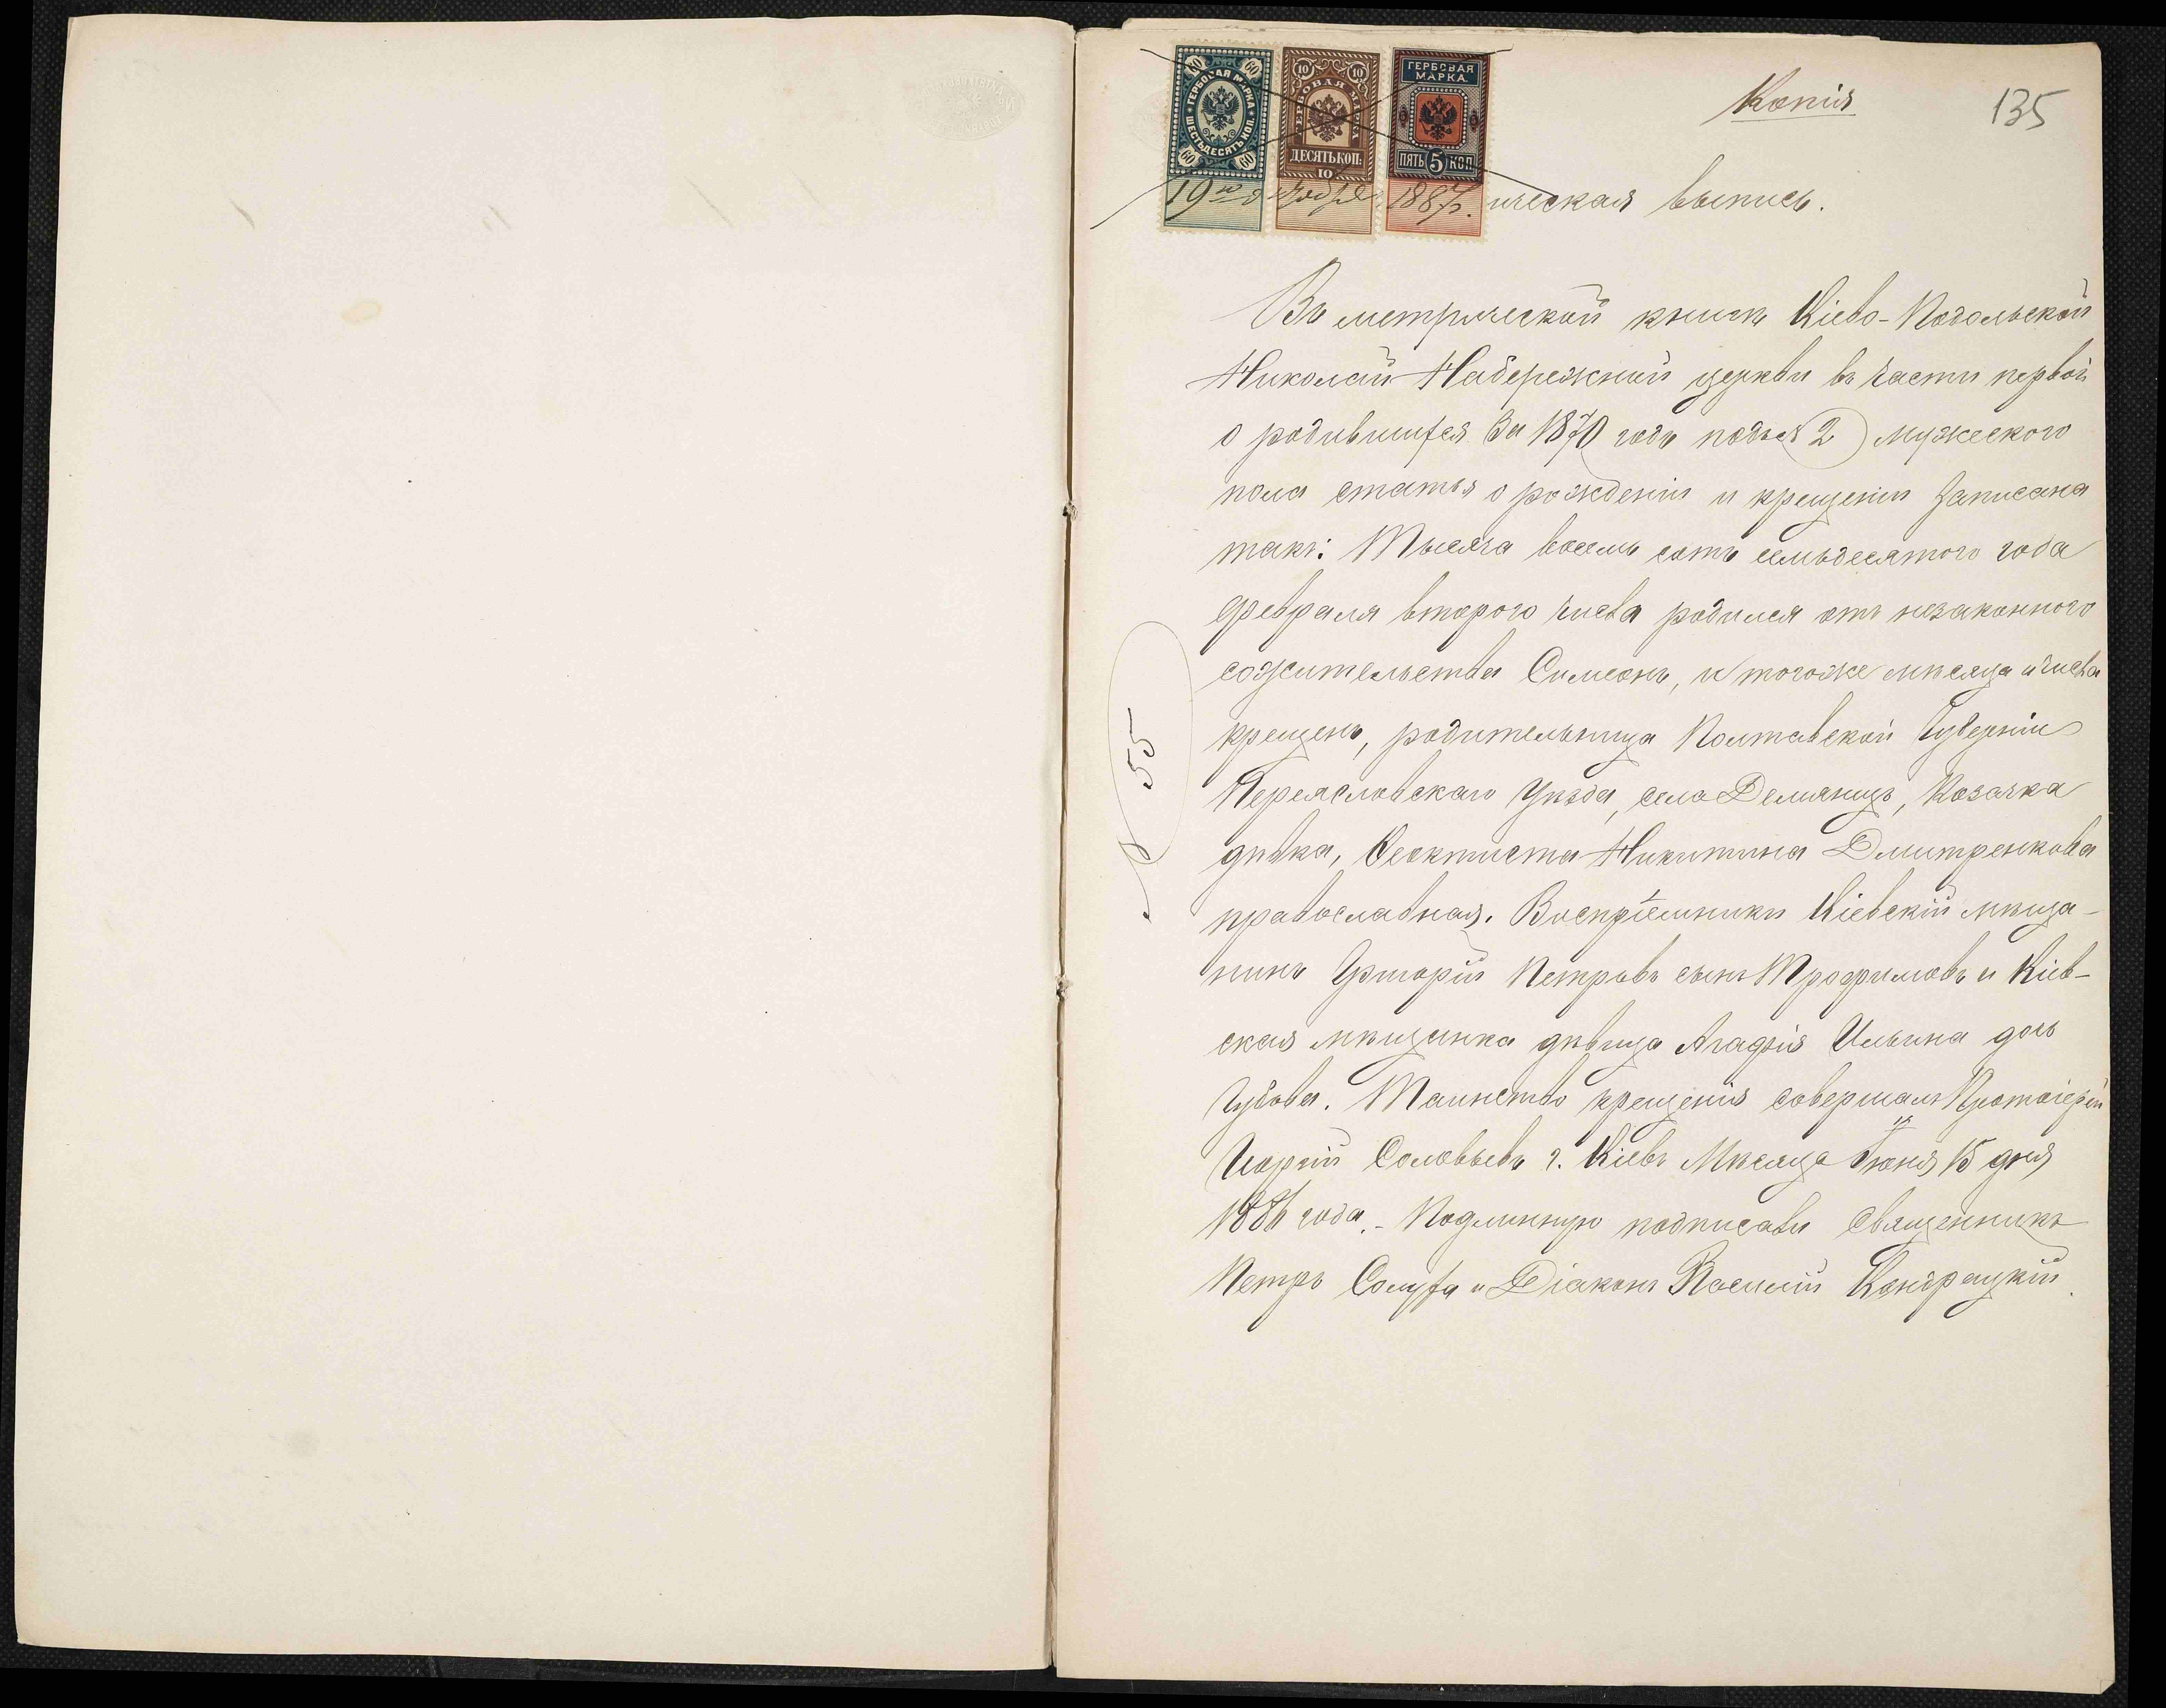 Копія
135
ГЕРБОВАЯ МАРКА
60 60
ШЕСТЬДЕСЯТЬ КОП.
60 60
10 10
ГЕРБОВАЯ МАРКА
ДЕСЯТЬ КОП.
10
ГЕРБОВАЯ
МАРКА.
ПЯТЬ 5 КОП.
19го 1887г.
ическая выпись.
Въ метрической книгѣ Кіево-Подольской
Николай Набережной церкви въ части первой
о родившихся за 1870 годъ подъ № 2 мужеского
пола статья о рожденіи и крещеніи записана
такъ: Тысяча восемь сотъ семьдесятого года
февраля второго числа родился отъ незаконного
сожительства Симеонъ, и тогоже мѣсяца и числа
крещенъ, родительница Полтавской Губерніи
Переяславскаго Уѣзда, села Демянецъ, Козачка
дѣвка, Феоктиста Никитина Дмитренкова
православная. Воспріемники Кіевскій мѣща-
нинъ Григорій Петровъ сынъ Трофимовъ и Кіев-
ская мѣщанка дѣвица Агафія Ильина дочь
Губова. Таинство крещенія совершалъ Протоіерей
Соловьевъ г. Кіевъ Мѣсяца Іюня 15 дня
1886 года.- Подлинную подписали Священникъ
Петръ Солуха и Діаконъ Василій Кондрацкій.
№ 55